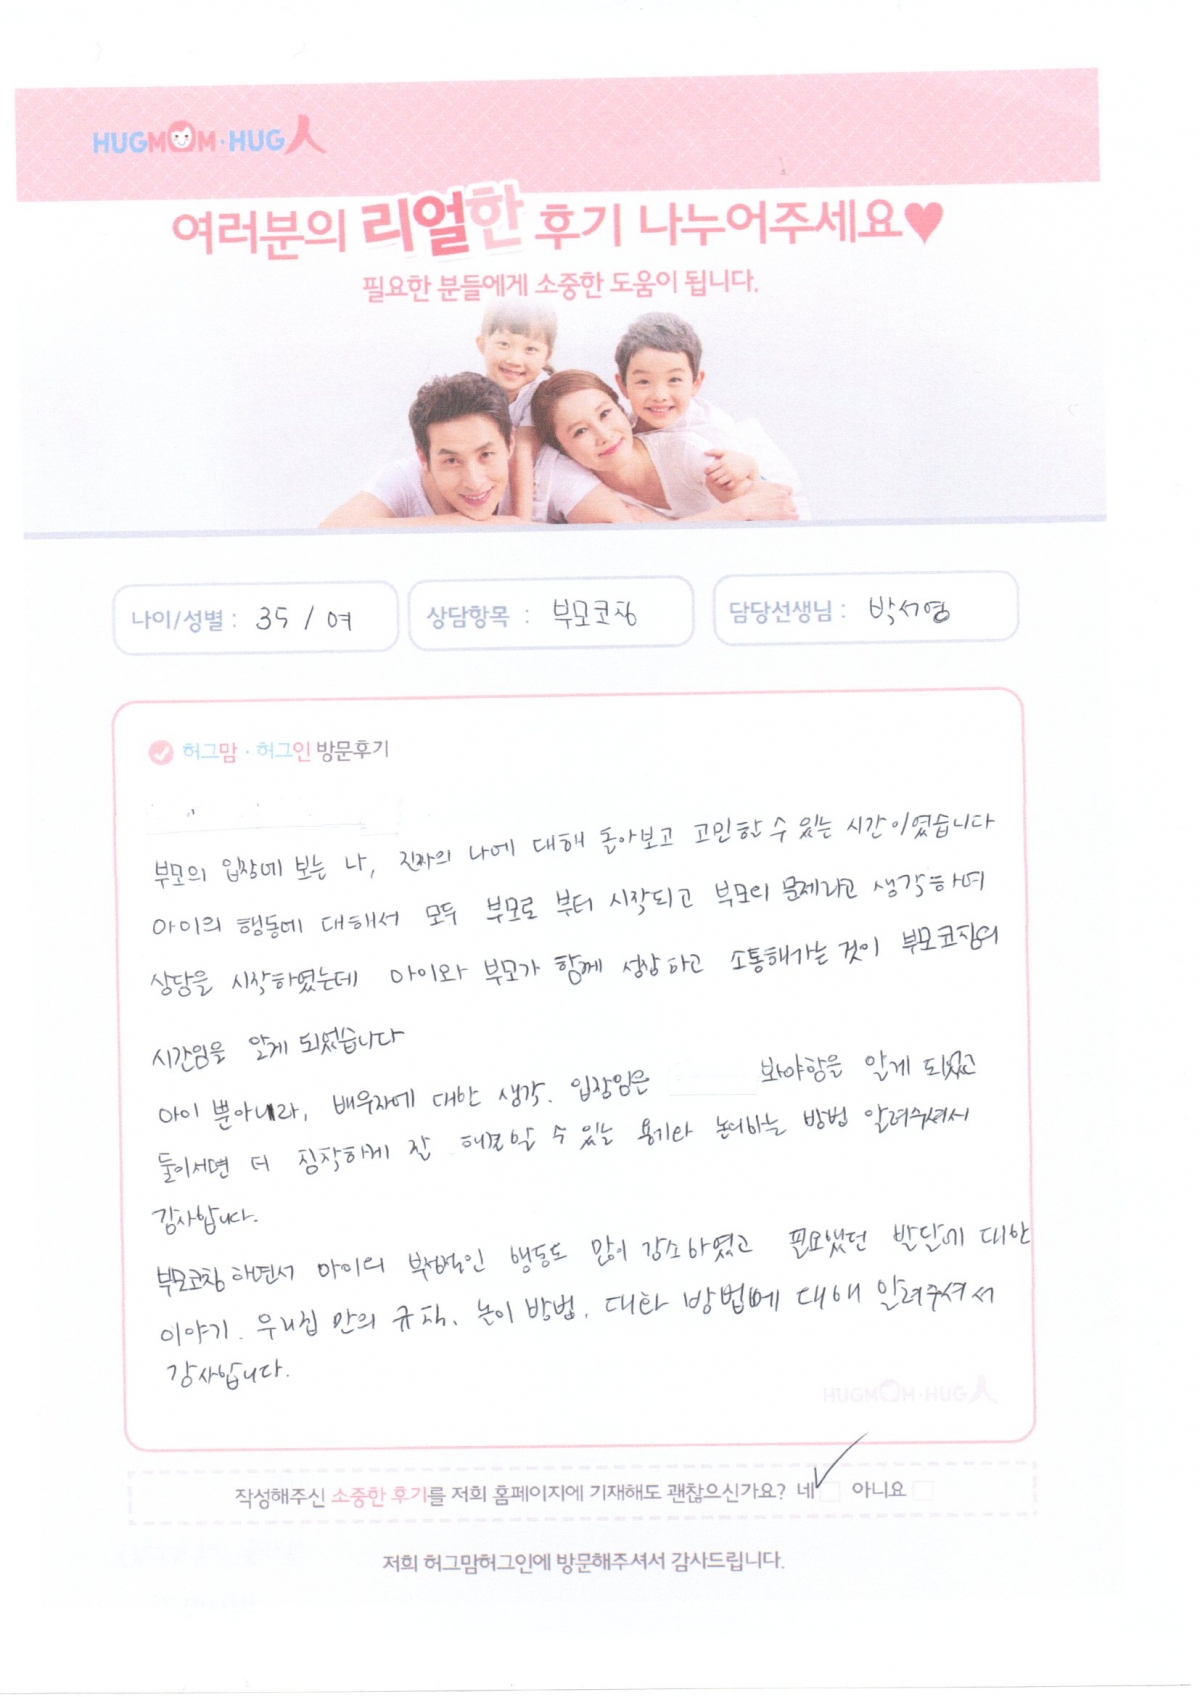 HUGMOM·HUG人
여러분의 리얼한 후기 나누어주세요♥
필요한 분들에게 소중한 도움이 됩니다.
나이/성별 : 35 / 여 상담항목 : 부모코칭 담당선생님 : 박서영
허그맘 · 허그인 방문후기
부모의 입장에 보는 나, 진짜의 나에 대해 돌아보고 고민할 수 있는 시간이였습니다
아이의 행동에 대해서 모두 부모로 부터 시작되고 부모의 문제라고 생각하여
상담을 시작하였는데 아이와 부모가 함께 성장하고 소통해가는 것이 부모코칭의
시간임을 알게 되었습니다
아이 뿐아니라, 배우자에 대한 생각. 입장임은 봐야함을 알게 되었고
둘이서면 더 침착하게 잘 해결할 수 있는 용기와 대하는 방법 알려주셔서
감사합니다.
부모코칭 하면서 아이의 부정적인 행동도 많이 감소하였고 필요했던 발달에 대한
이야기. 우리집 안의 규칙, 놀이 방법, 대화 방법에 대해 알려주셔서
감사합니다.
HUGMOM·HUG人
작성해주신 소중한 후기를 저희 홈페이지에 기재해도 괜찮으신가요? 네 아니요
저희 허그맘허그인에 방문해주셔서 감사드립니다.